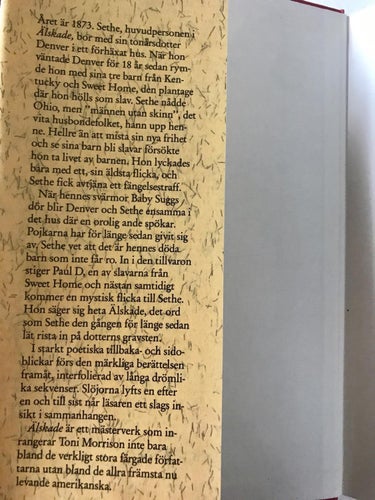 Året är 1873. Sethe, huvudpersonen i
Älskade, bor med sin tonårsdotter
Denver i ett förhäxat hus. När hon
väntade Denver för 18 år sedan rym-
de hon med sina tre barn från Ken-
tucky och Sweet Home, den plantage
där hon hölls som slav. Sethe nådde
Ohio, men "männen utan skinn", det
vita husbondefolket, hann upp hen-
ne. Hellre än att mista sin nya frihet
och se sina barn bli slavar försökte
hon ta livet av barnen. Hon lyckades
bara med ett, sin äldsta flicka, och
Sethe fick avtjäna ett fängelsestraff.
När hennes svärmor Baby Suggs
dör blir Denver och Sethe ensamma i
det hus där en orolig ande spökar.
Pojkarna har för länge sedan givit sig
av, Sethe vet att det är hennes döda
barn som inte får ro. In i den tillvaron
stiger Paul D, en av slavarna från
Sweet Home och nästan samtidigt
kommer en mystisk flicka till Sethe.
Hon säger sig heta Älskade, det ord
som Sethe den gången för länge sedan
lät rista in på dotterns gravsten.
I starkt poetiska tillbaka- och sido-
blickar förs den märkliga berättelsen
framåt, interfolierad av långa drömli-
ka sekvenser. Slöjorna lyfts en efter
en och till sist når läsaren ett slags in-
sikt i sammanhangen.
Älskade är ett mästerverk som in-
rangerar Toni Morrison inte bara
bland de verkligt stora färgade förfat-
tarna utan bland de allra främsta nu
levande amerikanska.